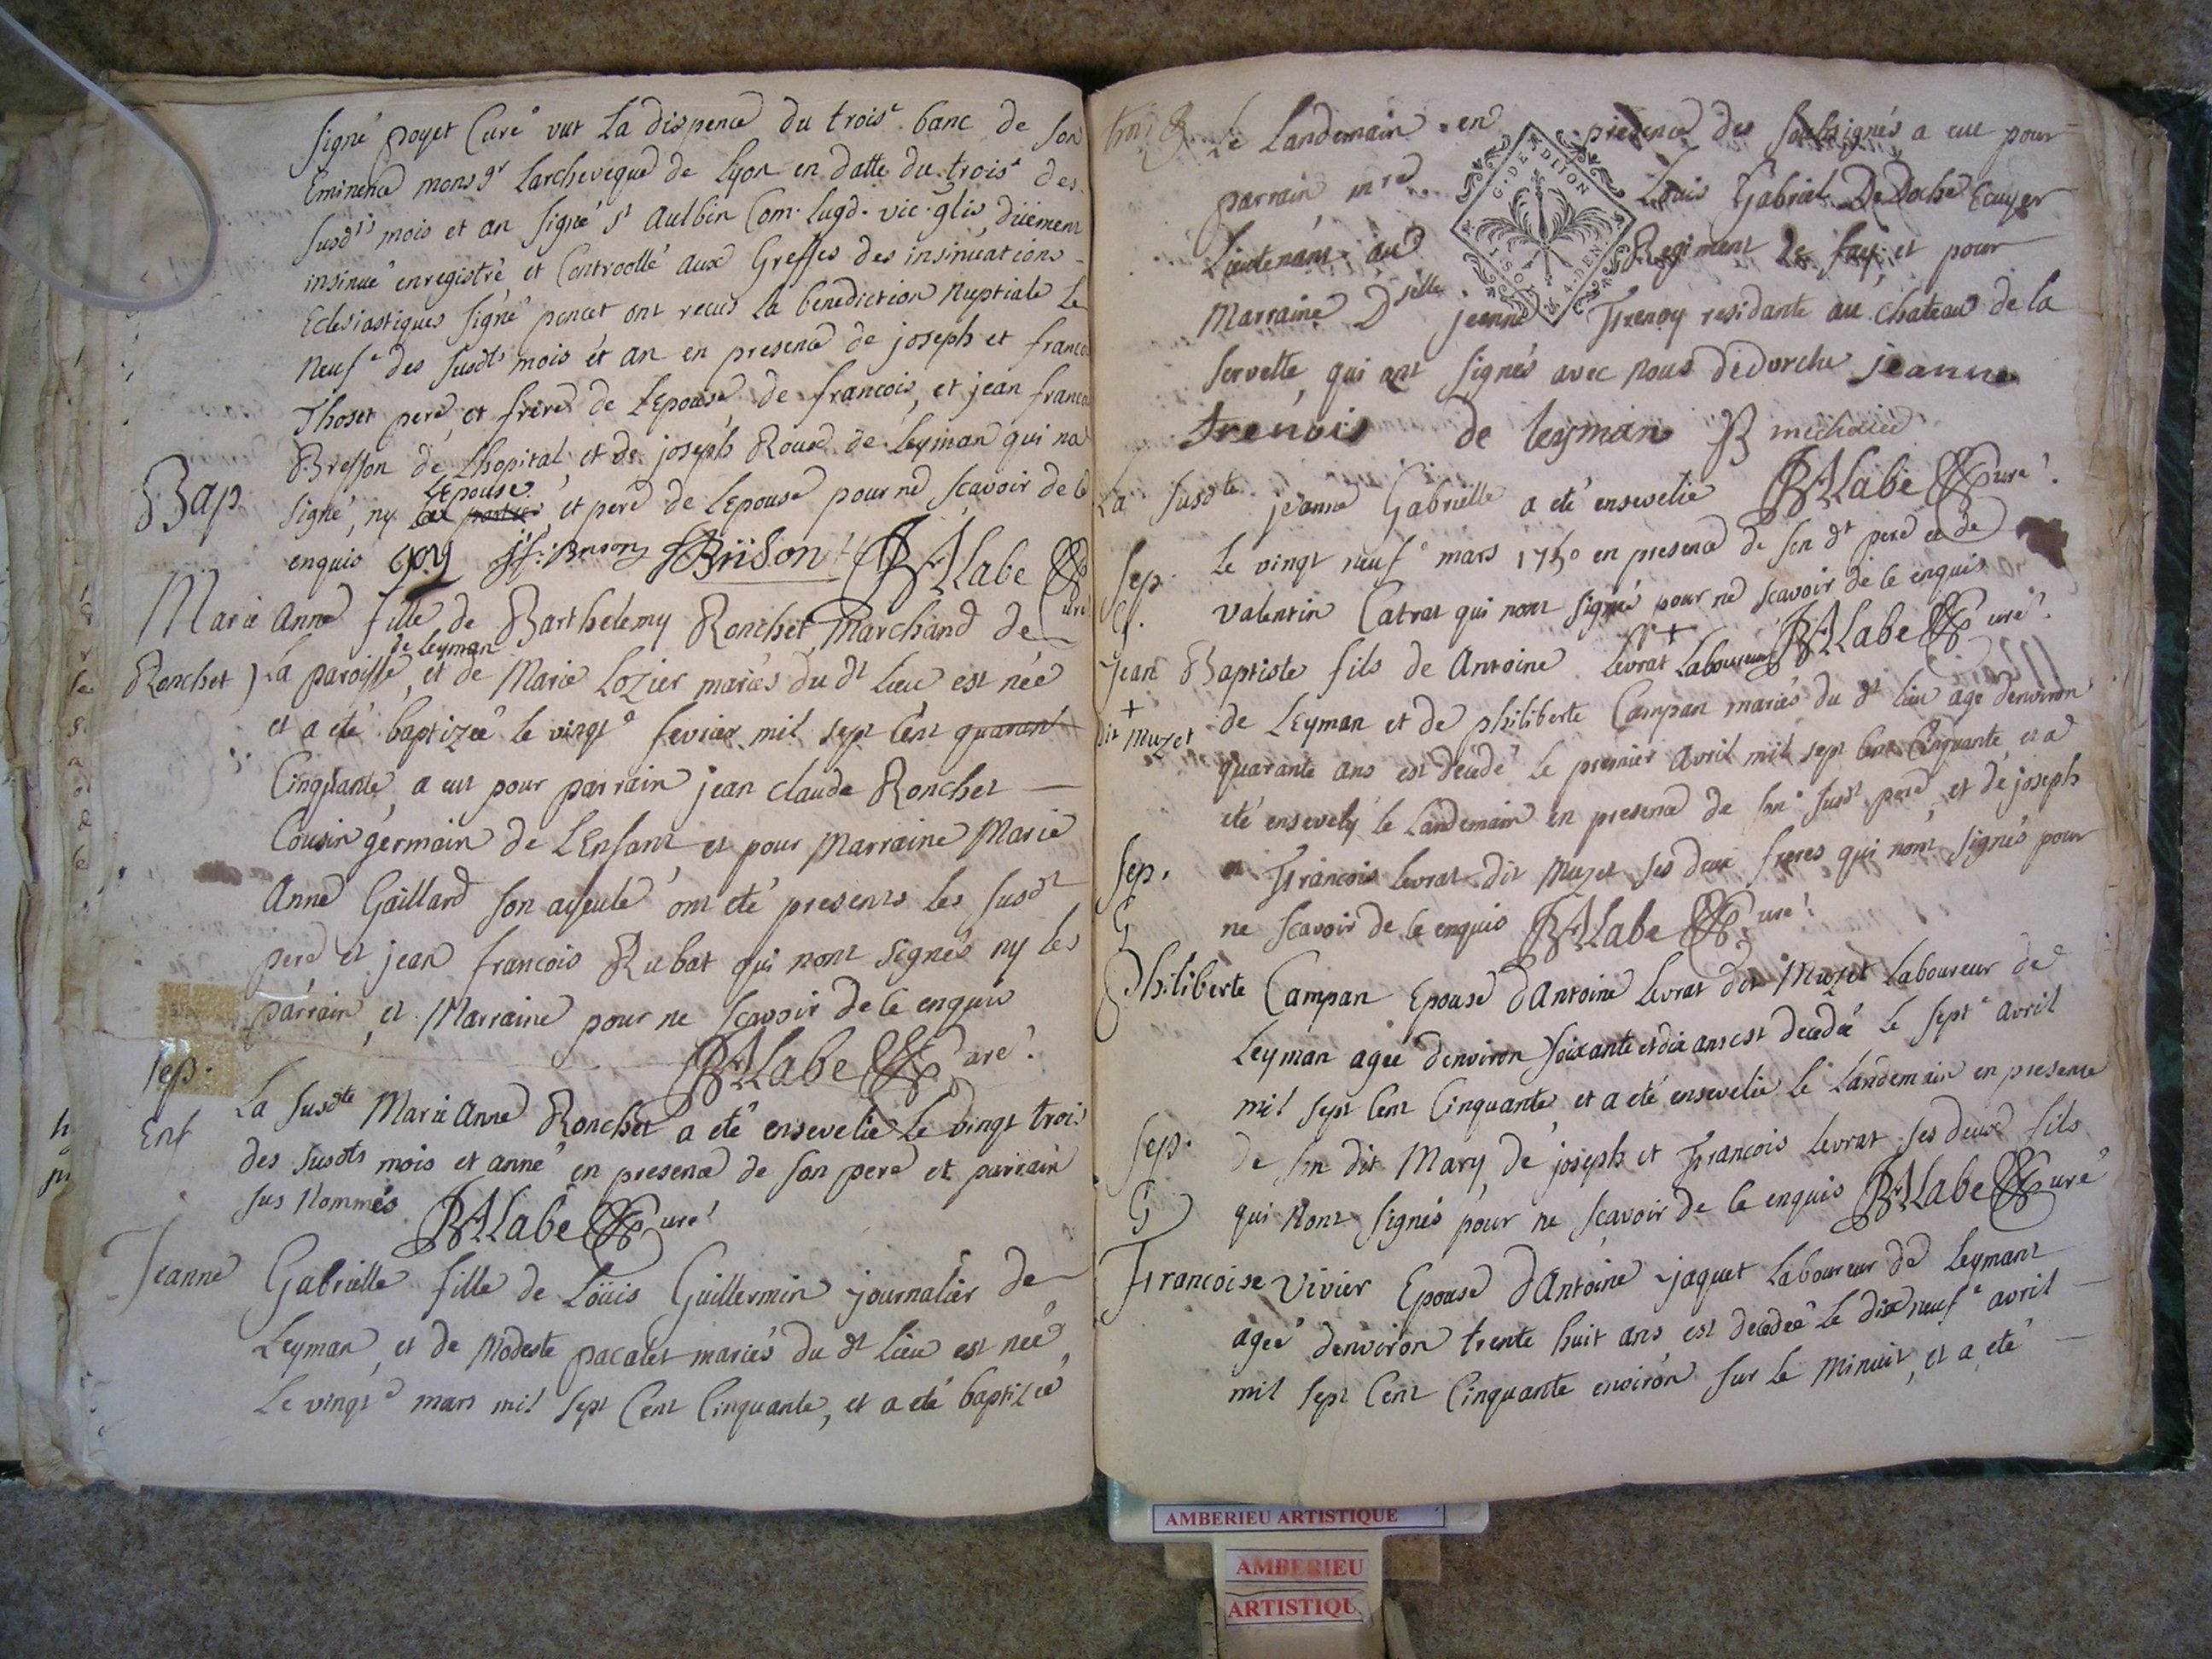 signé poyet Curé vut La dispence du trois.e banc de son
Eminence monsgr Larcheveque de Lyon en datte du trois.e des
susdts mois et an signé St Aulbin Com. Lugd. vic. glis düement
insinué enregistré et Controollé aux Greffes des insinüations
Eclesiastiques signé poncet ont recus la benediction Nuptiale Le
Neuf.e des susdts mois et an en presence de joseph et francois
Thoset pere, et frere de LEpouse, de francois, et jean francois
Bresson de Lhopital et de joseph Roux de Leyman qui na
Bap
LEpouse
signé, ny les parties, et pere de LEpouse pour ne scavoir de ce
enquis BALabe Curé
Marie Anne fille de Barthelemy Ronchet Marchand de
de Leyman
Ronchet) La paroisse, et de Marie Lozier mariés du dt Lieu est née
et a eté baptizée le vingt.e fevrier mil sept Cent quarant
Cinquante, a eut pour parrain jean Claude Ronchet —
Cousin germain de LEnfant et pour Marraine Marie
Anne Gaillard son ayeule ont eté presents les susdt
pere et jean francois Rubat qui nont signés ny les
parrain, et Marraine pour ne scavoir de ce enquis
BALabe Curé.
Sep.
La susdte Marie Anne Ronchet a eté ensevelie Le vingt trois
Enf
des susdts mois et anné en presence de son pere et parrain
sus Nommés BALabe Curé
Jeanne Gabrielle fille de Loüis Guillermin journalier de
Leyman, et de Modeste pacalet mariés du dt Lieu est née
Le vingt.e mars mil sept Cent Cinquante, et a eté baptizée
Le Landemain en presence des soubsignés a eut pour
parrain mre Louis Gabriel De Doche Ecuyer
Lieutenant au Regiment de fay, et pour
G. DE DION
A. DEN.
Marraine Dselle jeanne Trenoy residante au Chateau de la
servette, qui ont signés avec nous dedorche jeanne
trenois de leyman B michaud
BALabe Curé.
La susdte jeanne Gabrielle a eté ensevelie
Sep.
Le vingt neuf.e mars 1750 en presence de son dt pere et de
G.
Valentin Catrat qui nont signé pour ne scavoir de ce enquis
BALabe Curé.
Jean Baptiste fils de Antoine Levrat + Laboureur
+
dit Muzet
de LEyman et de philiberte Campan mariés du dt lieu age denviron
quarante ans est décédé le premier avril mil sept Cent Cinquante, et a
eté ensevely le Landemain en presence de son susdt pere, et de joseph
Sep.
et Francois Levrat dit Muzet ses deux freres qui nont signés pour
G
ne scavoir de ce enquis BALabe Curé.
Philiberte Campan Epouse dAntoine Levrat dit Muzet Laboureur de
Leyman agée denviron soixante et dix ans est decedée le sept.e avril
mil sept Cent Cinquante et a eté ensevelie le Landemain en presence
Sep.
de son dit Mary, de joseph et Francois Levrat ses deux fils
G
qui Nont signés pour ne scavoir de ce enquis BALabe Curé
Francoise Vivier Epouse dAntoine jaquet Laboureur de Leymant
agée denviron trente huit ans, est decedée Le dix neuf.e avril —
mil sept Cent Cinquante environ sur Le Minuit, et a eté —
AMBERIEU ARTISTIQUE
AMBERIEU
ARTISTIQU